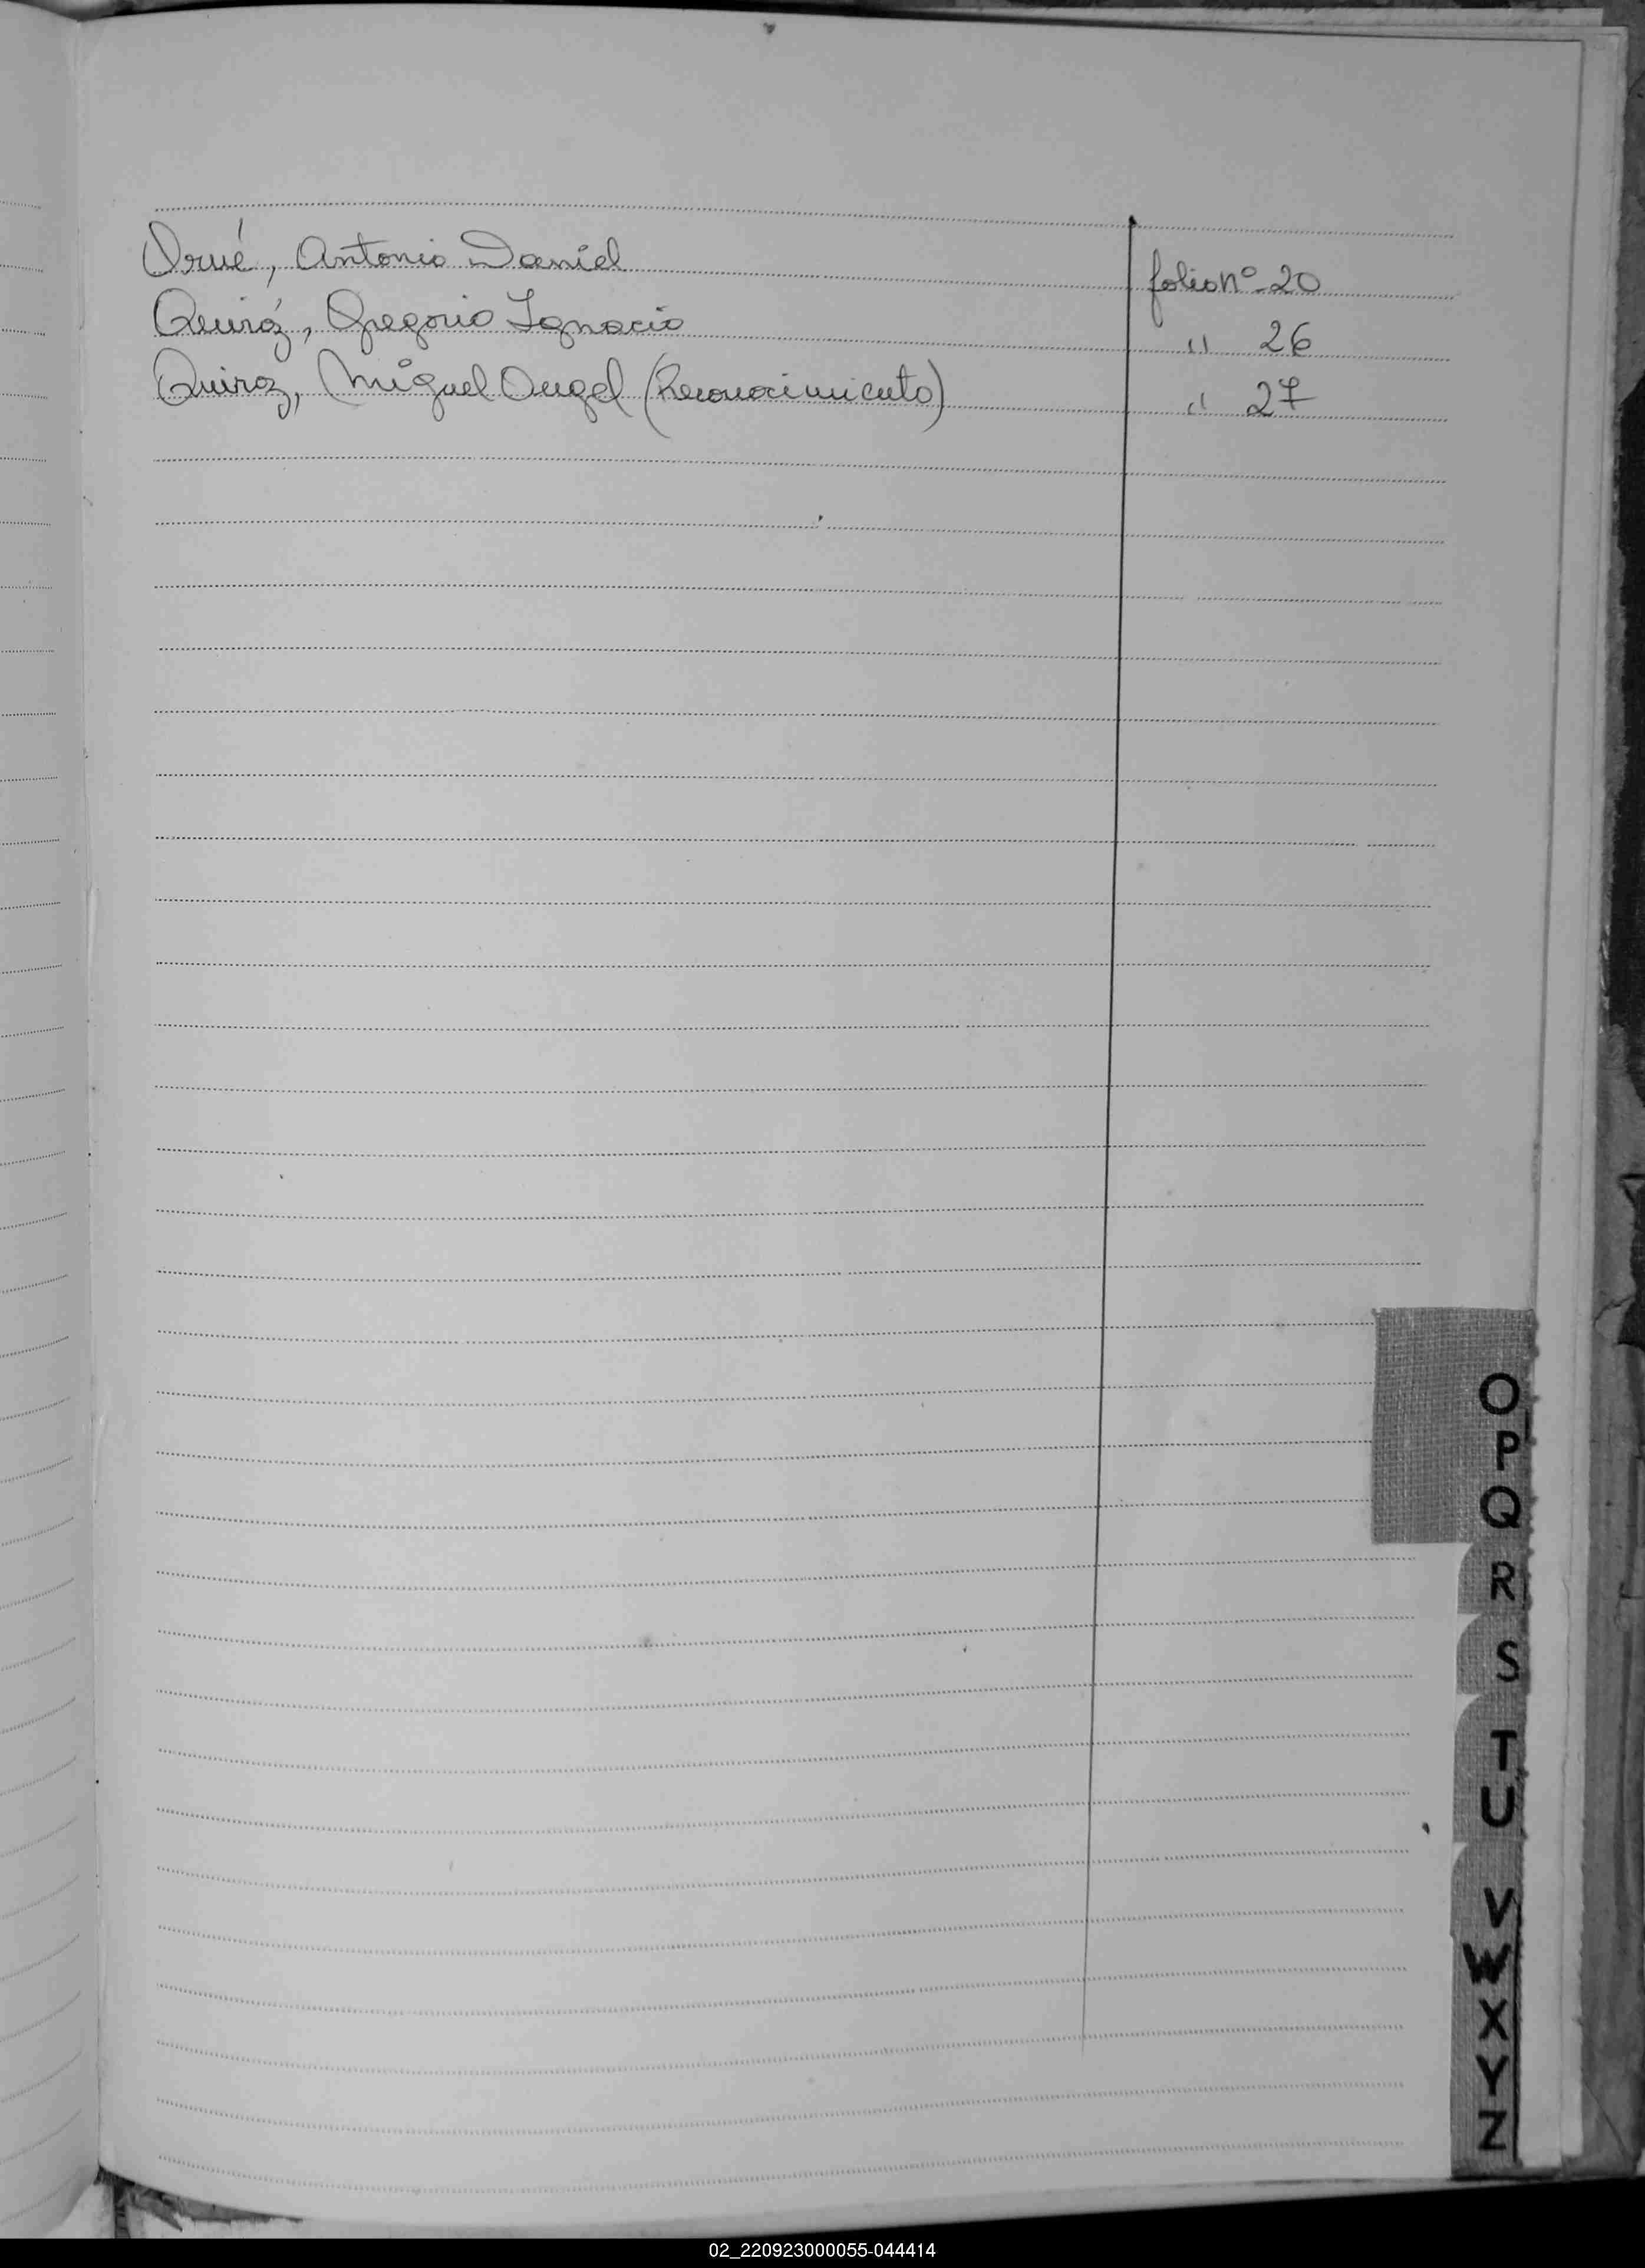 Orué, Antonio Daniel folio nº 20
Quiróz, Gregorio Ignacio " 26
Quiroz, Miguel Angel (Reconocimiento) " 27
O
P
Q
R
S
T
U
V
W
X
Y
Z
02_220923000055-044414